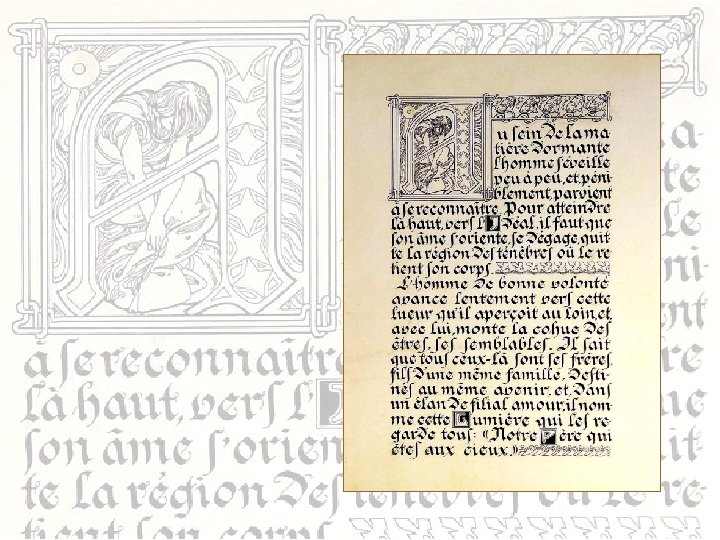 Au sein de la ma
tière dormante
l'homme s'éveille
peu à peu, et, péni
blement, parvient
à se reconnaître. Pour atteindre
là haut, vers l'Idéal, il faut que
son âme s'oriente, se dégage, quit
te la région des ténèbres où le re
tient son corps.
L'homme de bonne volonté
avance lentement vers cette
lueur qu'il aperçoit au loin, et,
avec lui, monte la cohue des
êtres, ses semblables. Il sait
que tous ceux-là sont ses frères,
fils d'une même famille, desti-
nés au même avenir, et, dans
un élan de filial amour, il nom
me cette Lumière qui les re-
garde tous: «Notre Père qui
êtes aux cieux.»
à se reconnaître
là haut, vers l'I
son âme s'orien
te la région des ténèbres où le re-
tient son corps